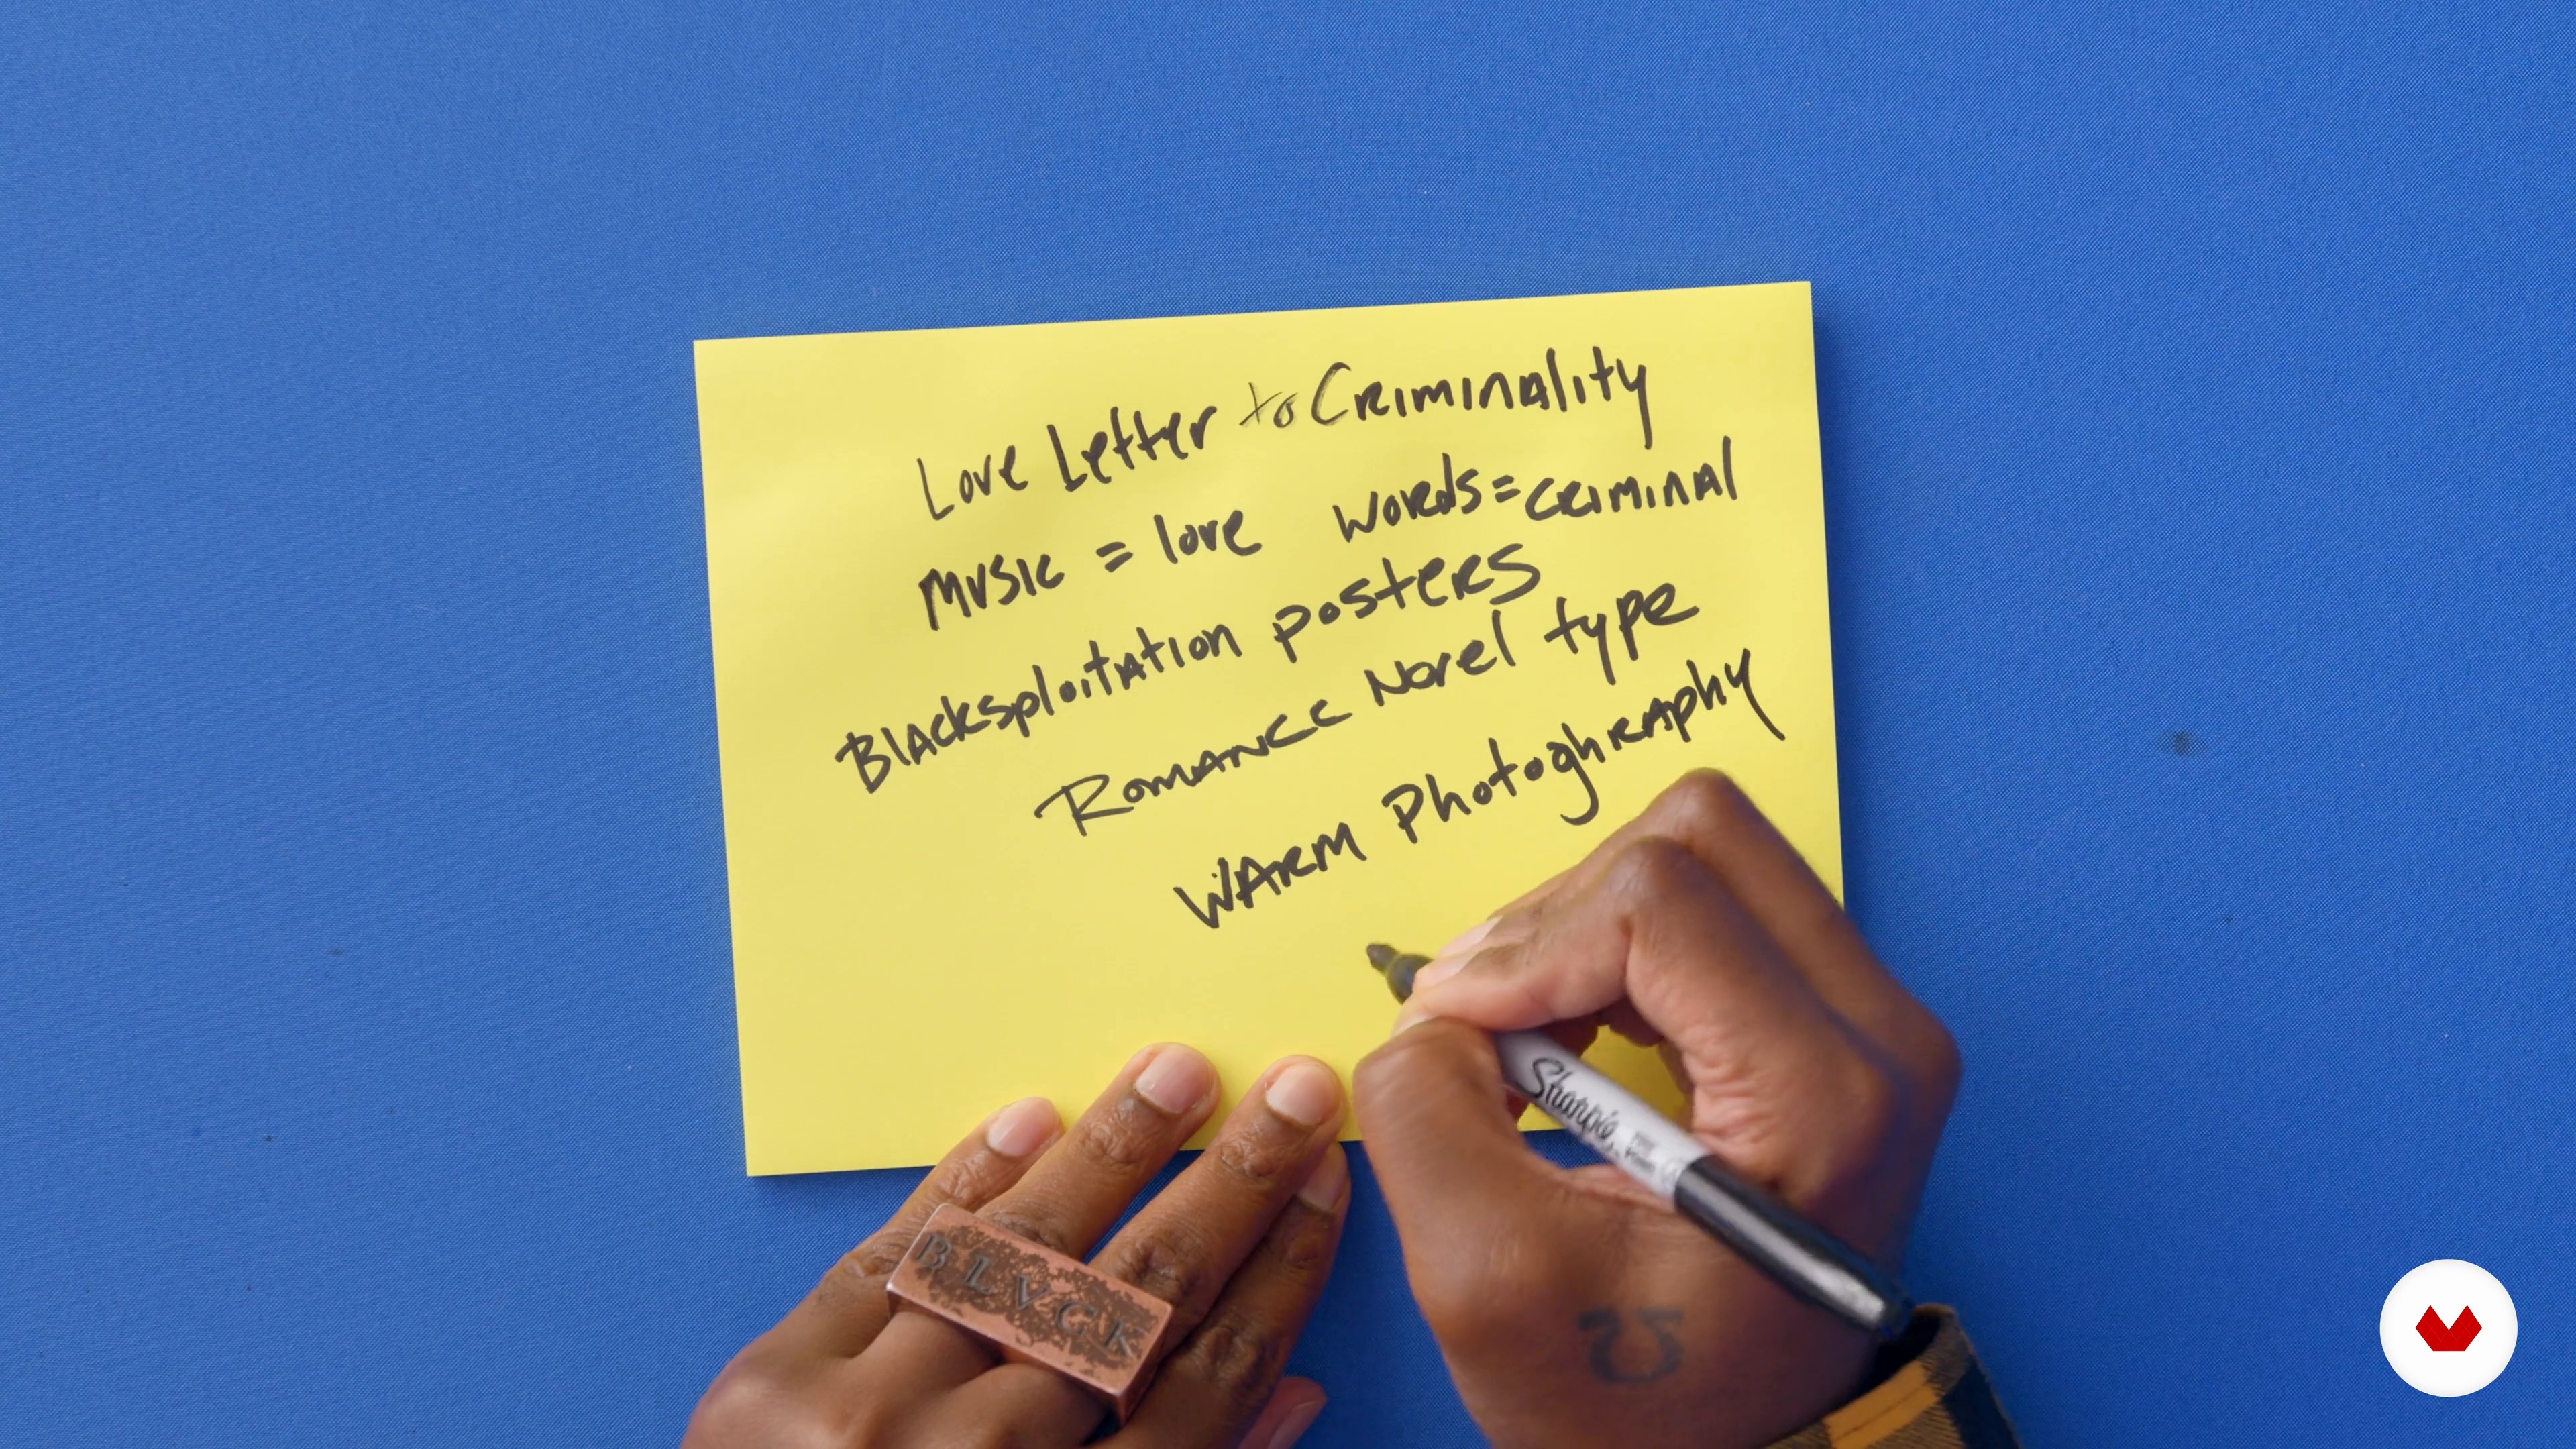 Love Letter to Criminality
Music = love words = criminal
Blacksploitation posters
Romance Novel type
Warm Photoghraphy
Sharpie
BLVCK